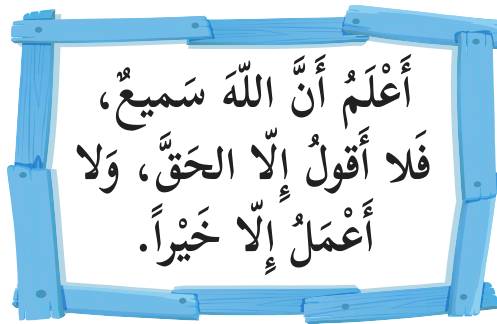 أَعْلَمُ أَنَّ اللّهَ سَميعٌ،
فَلا أَقولُ إِلّا الحَقَّ، وَلا
أَعْمَلُ إِلّا خَيْراً.